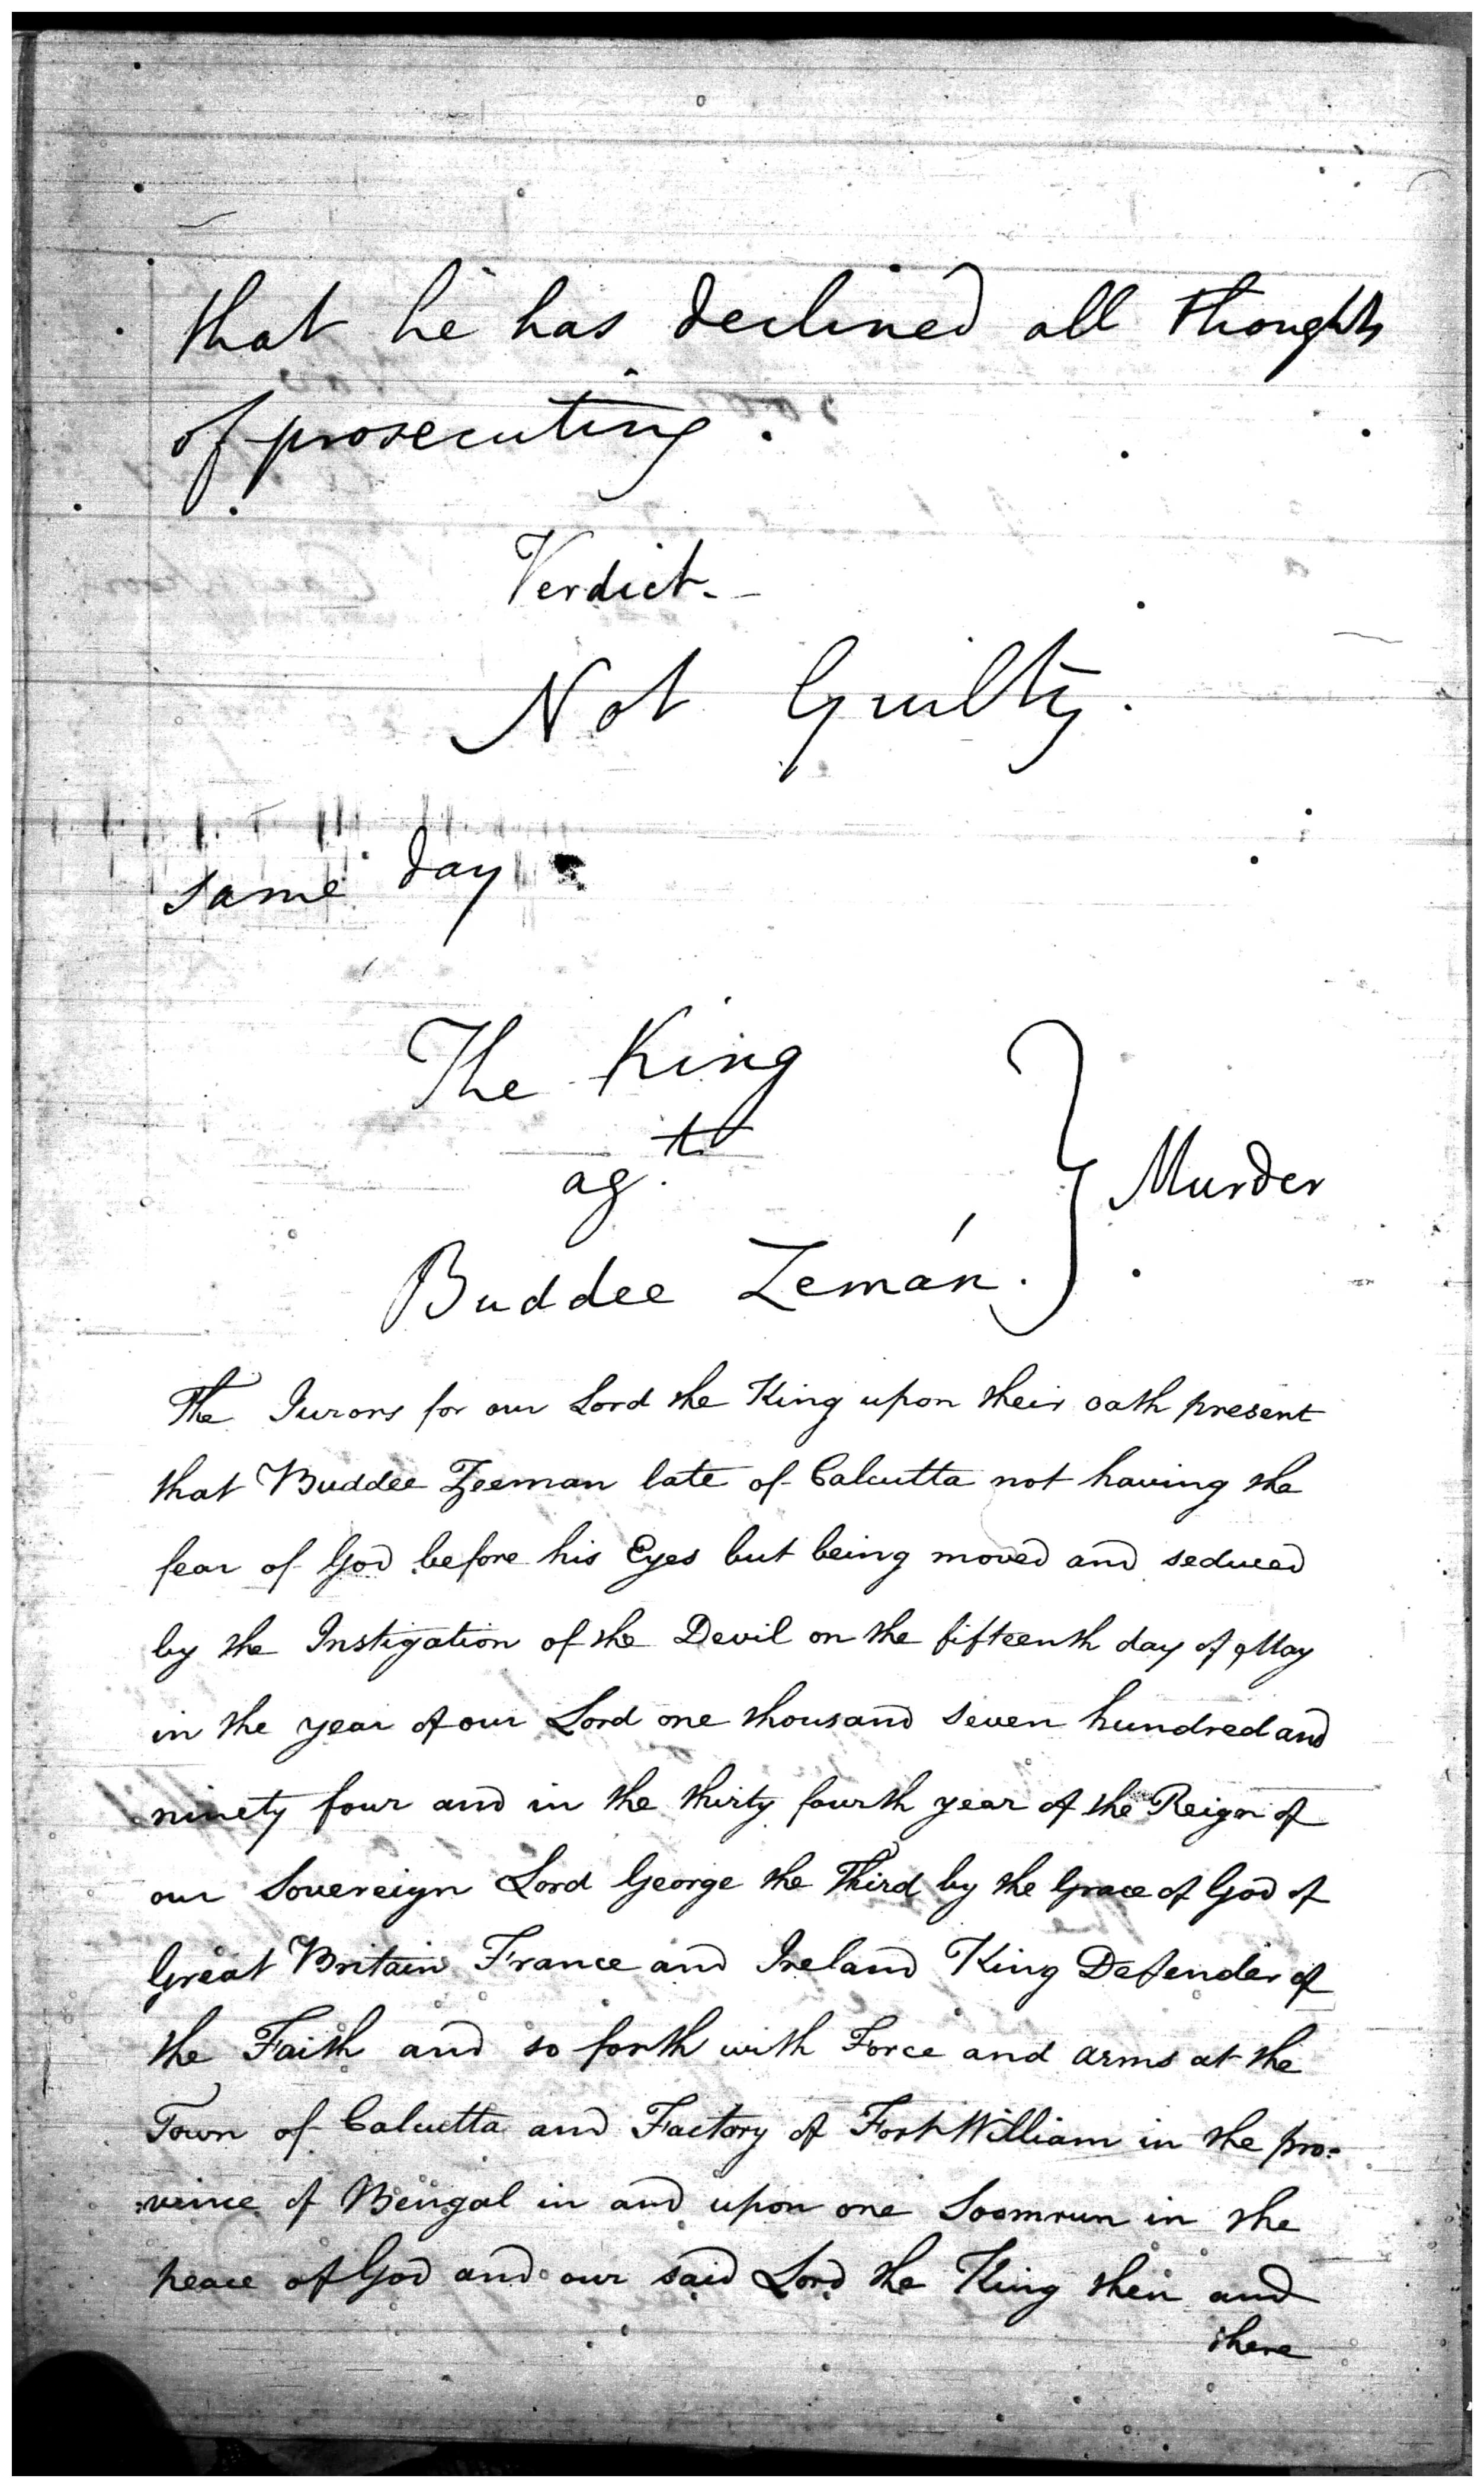 that he has declined all thoughts
of prosecuting.
Verdict.
Not Guilty.
same day
The King
agt.
Buddee Zemán. } Murder
The Jurors for our Lord the King upon their oath present
that Buddee Zeeman late of Calcutta not having the
fear of God before his Eyes but being moved and seduced
by the Instigation of the Devil on the fifteenth day of May
in the year of our Lord one thousand seven hundred and
ninety four and in the thirty fourth year of the Reign of
our Sovereign Lord George the Third by the Grace of God of
Great Britain France and Ireland King Defender of
the Faith and so forth with Force and arms at the
Town of Calcutta and Factory of Fort William in the pro=
=vince of Bengal in and upon one Soomrun in the
peace of God and our said Lord the King then and
there